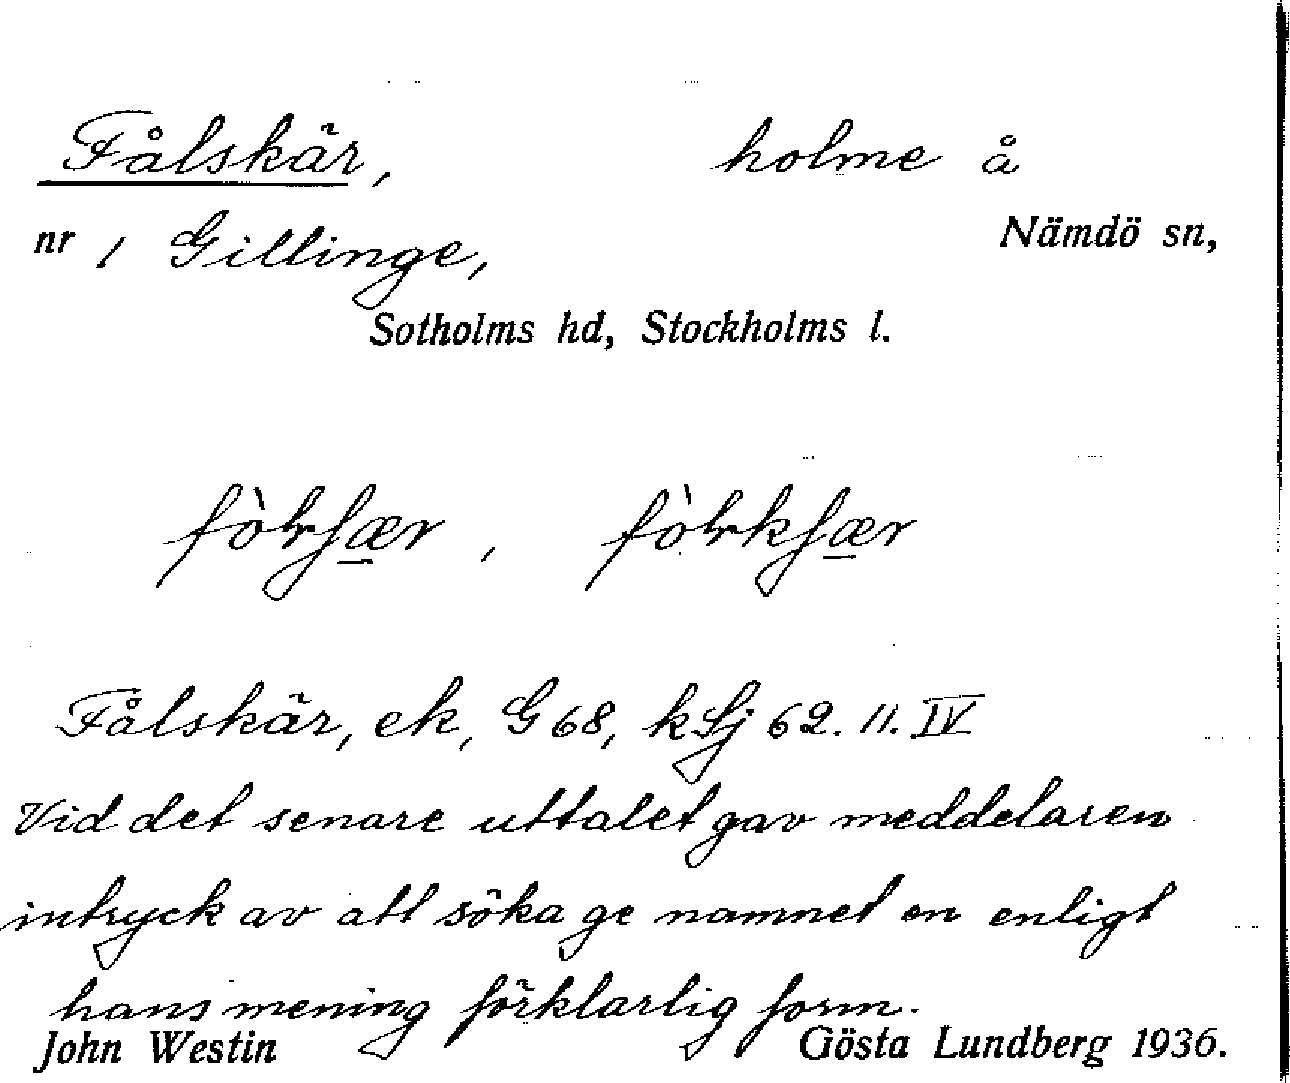 Fålskär, holme å
nr 1 Gillinge, Nämdö sn,
Sotholms hd, Stockholms l.
Fålskär, ek, G 68, k Sj 62. 11. IV
Vid det senare uttalet gav meddelaren
intryck av att söka ge namnet en enligt
hans mening förklarlig form.
John Westin Gösta Lundberg 1936.